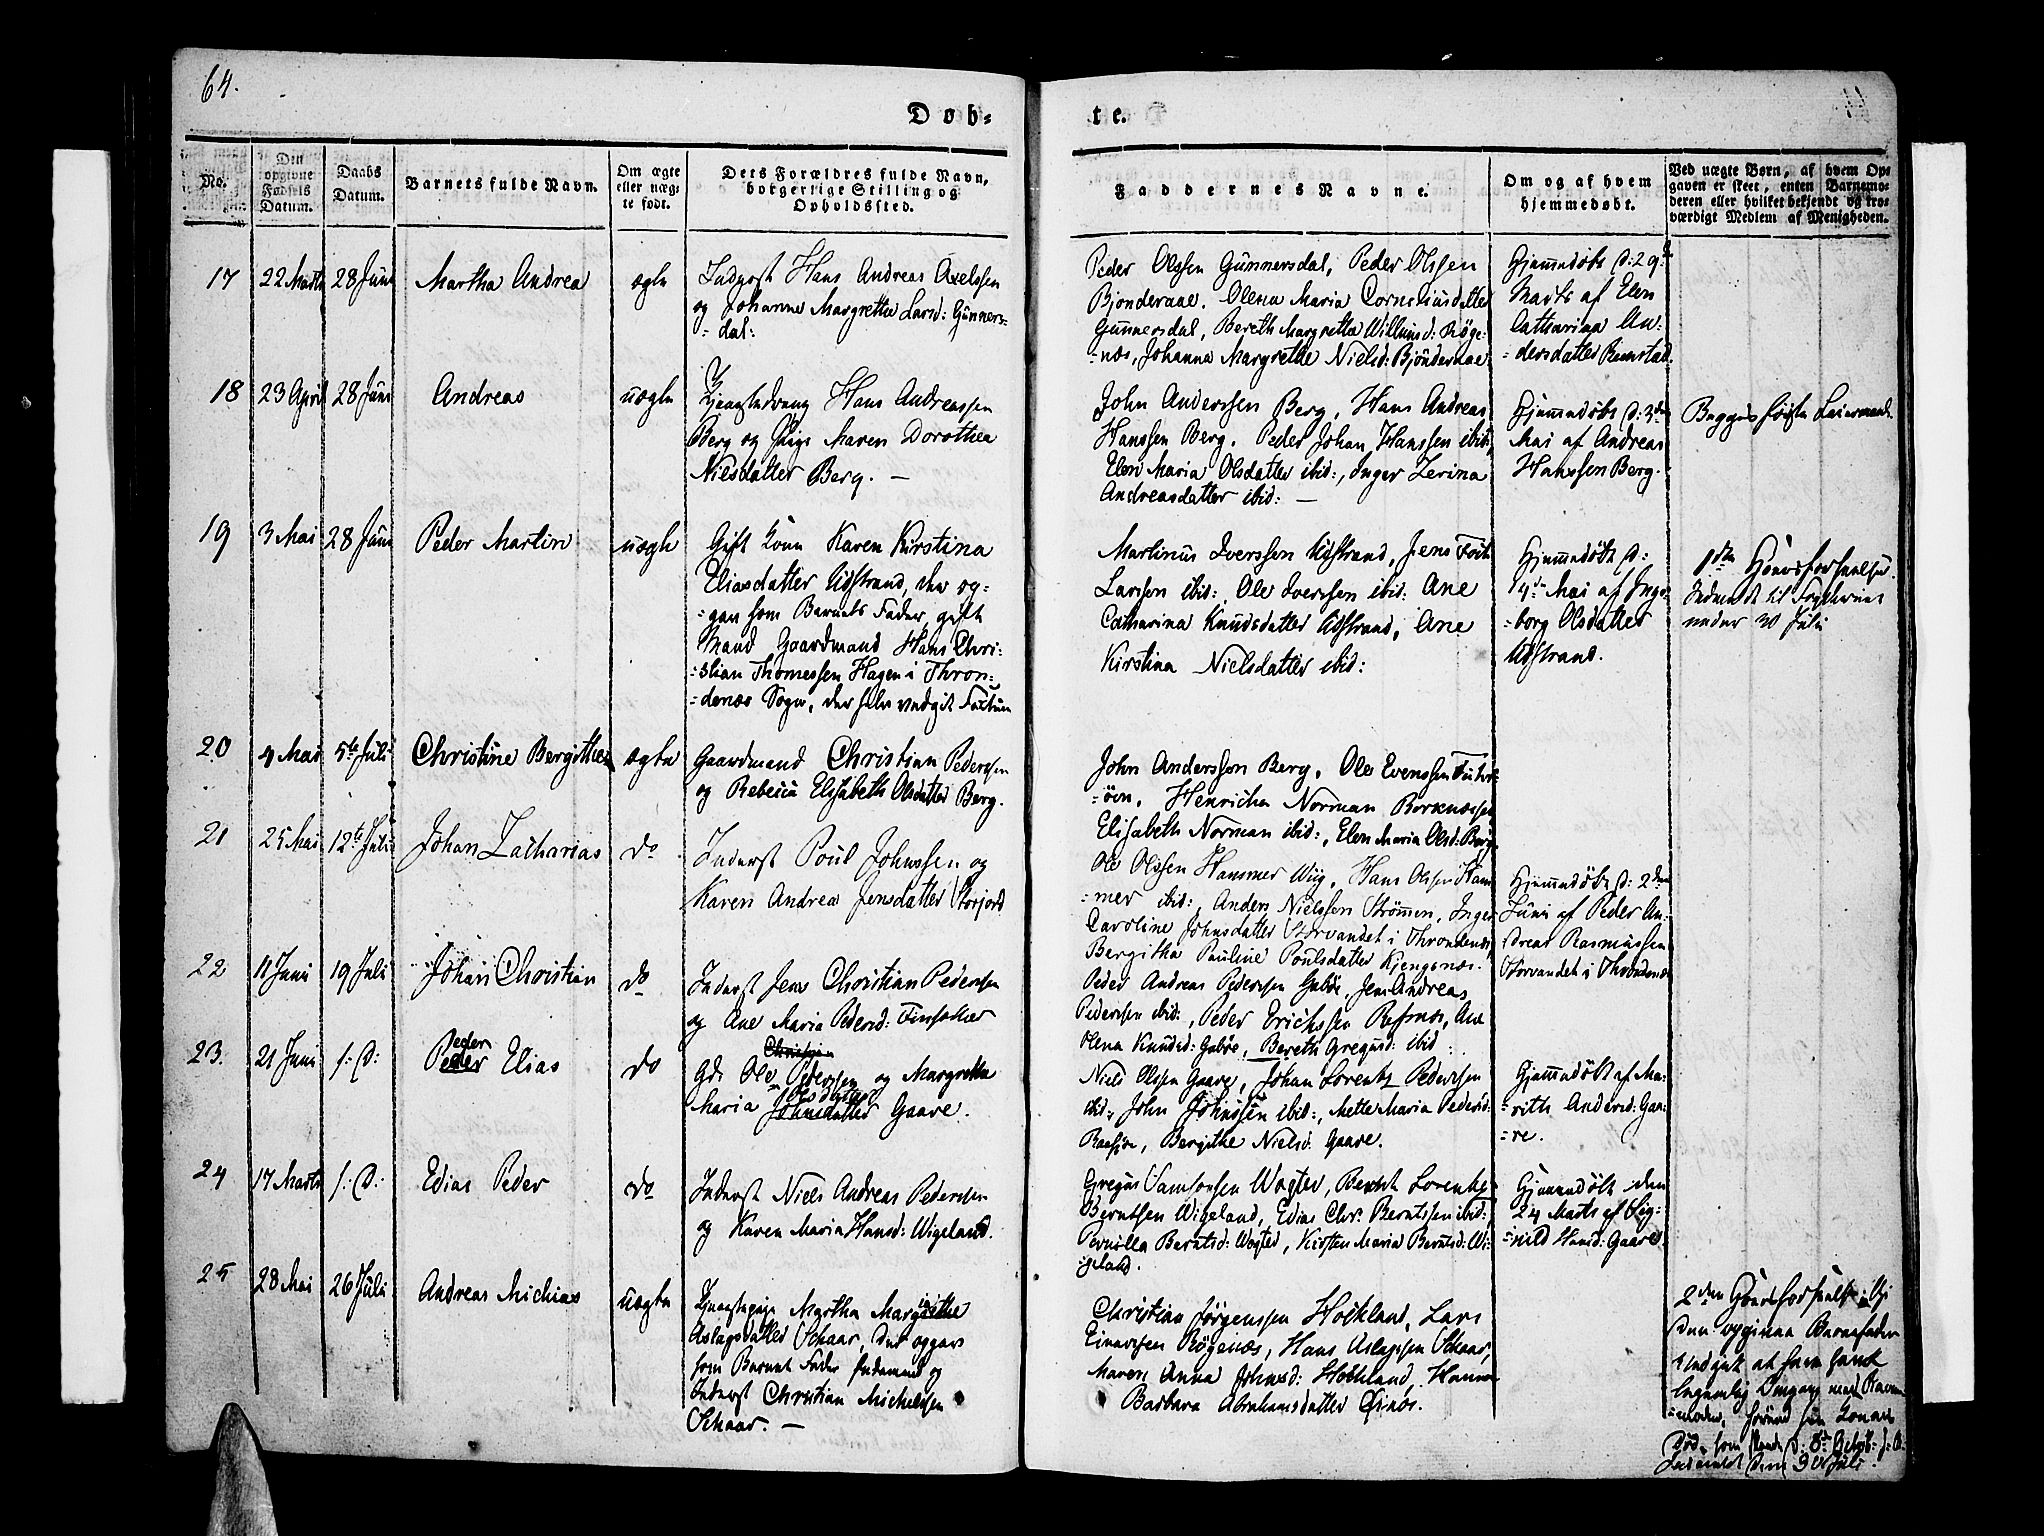 64.
Døb-
te.
No.
Den opgivne Fødsels Datum.
Daabs Datum.
Barnets fulde Navn.
Om ægte eller uægte født.
Dets Forældres fulde Navn, borgerlige Stilling og Opholdssted.
Faddernes Navne.
Om og af hvem hjemmedøbt.
Ved uægte Børn, af hvem Opgaven er skeet, enten Barnemoderen eller hvilket bekjendt og troværdigt Medlem af Menigheden.
17
22 Marts
28 Juni
Martha Andrea
ægte
Inderst Hans Andreas Axelssen
og Johanna Margrethe Larsd: Gunners-
-dal:
Peder Olssen Gunnersdal, Peder Olssen
Bjonderaae. Olena Maria Corneliusdatter
Gunnersdal, Bereth Margrethe Willumsd: Røge-
-næs, Johanna Margrethe Nielsd: Bjönderaae
Hjemmdøbt d: 29de
Marts af Elen
Catharina An-
-dersdatter Remstad.
18
23 April
28 Juni
Andreas
uægte
Hans Andreassen
Berg og Pige Maren Dorothea
Nielsdatter Berg. —
John Anderssen Berg, Hans Andreas
Hanssen Berg. Peder Johan Hanssen ibid:
Elen Maria Olsdatter ibid:, Inger Zerina
Andreasdatter ibid: —
Hjemmdøbt d: 3die
Mai af Andreas
Hanssen Berg.
Begges første Leiermaal
19
3 Mai
28 Juni
Peder Martin
uægte
Gift Kone Karen Kirstina
Eliasdatter Udstrand, der op-
-gav som Barnets Fader, gift
Mand Gaardmand Hans Chri-
-stian Thomessen Hagen i Thron-
-denæs Sogn, der selv vedgik Factum
Martinus Iverssen Udstrand, Jens
Larssen ibid:, Ole Iverssen ibid: Ane
Catharina Knudsdatter Udstrand, Ane
Kirstina Nielsdatter ibid:
Hjemmdøbt d:
14de Mai af Inge-
-borg Olsdatter
Udstrand.
1ste Hoersforseelse.
Indmeldt til
under 30 Juli
20
4 Mai
5te Juli
Christine Bergithe
ægte
Gaardmand Christian Pederssen
og Rebecca Elisabeth Olsdatter Berg.
John Anderssen Berg, Ole Evenssen
-öen, Henricha Norman Borkenæs
Elisabeth Norman ibid:, Elen Maria Olsd: Berg
21
25 Mai
12te Juli
Johan Zacharias
do
Inderst Poul Johnssen og
Karen Andrea Jensdatter Storjord
Ole Olssen Hammer Wiig, Hans Olssen Ham-
-mer ibid:, Anders Nielssen Strömen, Inger
Caroline Johnsdatter Storvandet i Throndenæs,
Bergitha Pauline Poulsdatter Kjengsnæs.
Hjemmdøbt d: 2den
Juni af Peder An-
dreas Rasmussen
Storvandet i Throndenæs
22
11 Juni
19 Juli
Johan Christian
do
Inderst Jens Christian Pederssen
og Ane Maria Pedersd:
Peder Andreas Pederssen Gabøe, Jens Andreas
Pederssen ibid:, Peder Erichssen Refsnæs, Ane
Olena Knudsd: Gabøe, Bereth Gregusd: ibid:
23.
21 Juni
s: D:
Peder
Peder Elias
do
Christian
Gdm Ole Pederssen og Margretha
Olsdatter
Maria Johnsdatter Gaare.
Niels Olssen Gaare, Johan Lorentz Pederssen
ibid:, John Johnssen ibid:, Mette Maria Pedersd:
Bergithe Nielsd: Gaare.
Hjemmdøbt af Ma-
-rith Andersd: Gaa-
-re.
24
17 Marts
s: D:
Edias Peder
do
Inderst Niels Andreas Pederssen
og Karen Maria Hansd: Wigeland.
Gregus Samsonsen Wogter, Berent Lorentz
Berntsen Wigeland, Edias Chr: Berntssen ibid:,
Pernilla Berntsd: Wogter, Kirsten Maria Berntsd: Wi-
geland.
Hjemmdøbt den
24 Marts af Sig-
-nild Hansd: Gaare
25
28 Mai
26 Juli
Andreas Michias
uægte
Martha Margrethe
Aslagsdatter Schaar, der opgav
som Barnets Fader
Inderst Christian Michelssen
Schaar. —
Christian Jörgenssen Holkland, Lars
Einerssen Røgenæs, Hans Aslagssen Schaar,
Maren Anna Johnsd: Holkland, Hanna
Barbara Abrahamsdatter
2den
Den opgivne Barnefader
at have havt
legemlig Omgang med Barne-
moder,
Død,
Indmeldt den 30 Juli.